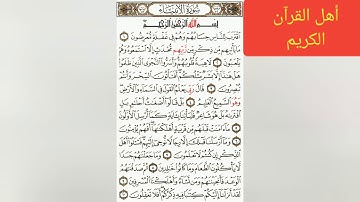 أهل القرآن
الكريم
سورة الأنبياء
بسم الله الرحمن الرحيم
اقترب للناس حسابهم وهم في غفلة معرضون
ما يأتيهم من ذكر من ربهم محدث إلا استمعوه وهم
يلعبون لاهية قلوبهم وأسروا النجوى الذين ظلموا
هل هذا إلا بشر مثلكم أفتأتون السحر وأنتم
تبصرون قال ربي يعلم القول في السماء والأرض
وهو السميع العليم بل قالوا أضغاث أحلام بل
افتراه بل هو شاعر فليأتنا بآية كما أرسل الأولون
ما آمنت قبلهم من قرية أهلكناها أفهم يؤمنون
وما أرسلنا قبلك إلا رجالا نوحي إليهم فسألوا أهل
الذكر إن كنتم لا تعلمون وما جعلناهم جسدا
لا يأكلون الطعام وما كانوا خالدين ثم صدقناهم
الوعد فأنجيناهم ومن نشاء وأهلكنا المسرفين
لقد أنزلنا إليكم كتابا فيه ذكركم أفلا تعقلون